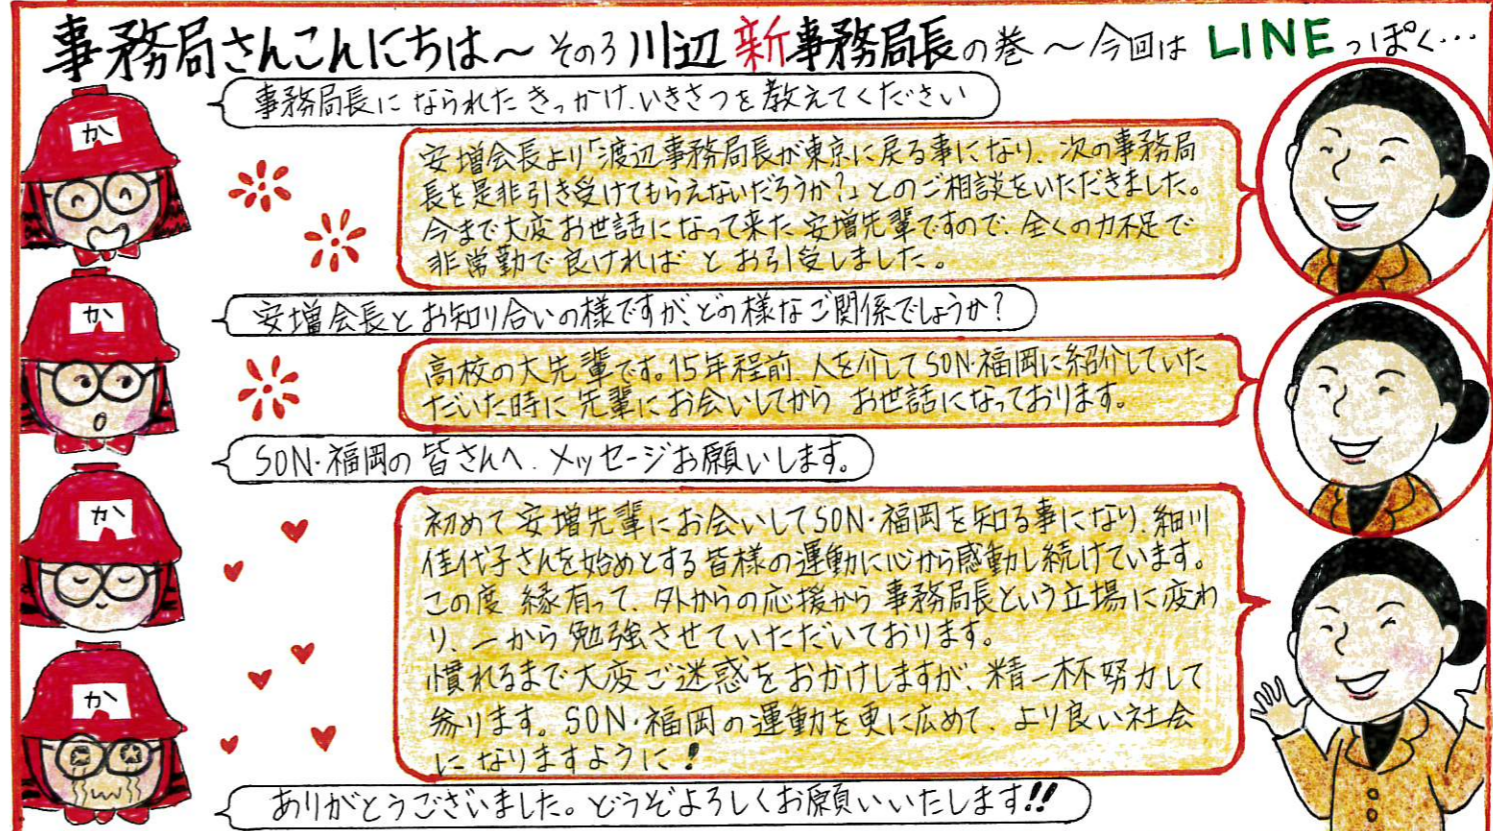 事務局さんこんにちは～その3 川辺 新事務局長の巻～今回は LINEっぽく…
事務局長になられたきっかけ、いきさつを教えてください
安増会長より「渡辺事務局長が東京に戻る事になり、次の事務局
長を是非引き受けてもらえないだろうか?」とのご相談をいただきました。
今まで大変お世話になって来た安増先輩ですので、全くの力不足で
非常勤で良ければとお引受しました。
安増会長とお知り合いの様ですが、どの様なご関係でしょうか?
高校の大先輩です。15年程前、人を介してSON・福岡に紹介していた
だいた時に先輩にお会いしてからお世話になっております。
SON・福岡の皆さんへ、メッセージお願いします。
初めて安増先輩にお会いしてSON・福岡を知る事になり、細川
佳代子さんを始めとする皆様の運動に心から感動し続けています。
この度縁有って、外からの応援から事務局長という立場に変わ
り、一から勉強させていただいております。
慣れるまで大変ご迷惑をおかけしますが、精一杯努力して
参ります。SON・福岡の運動を更に広めて、より良い社会
になりますように!
ありがとうございました。どうぞよろしくお願いいたします!!
か
か
か
か